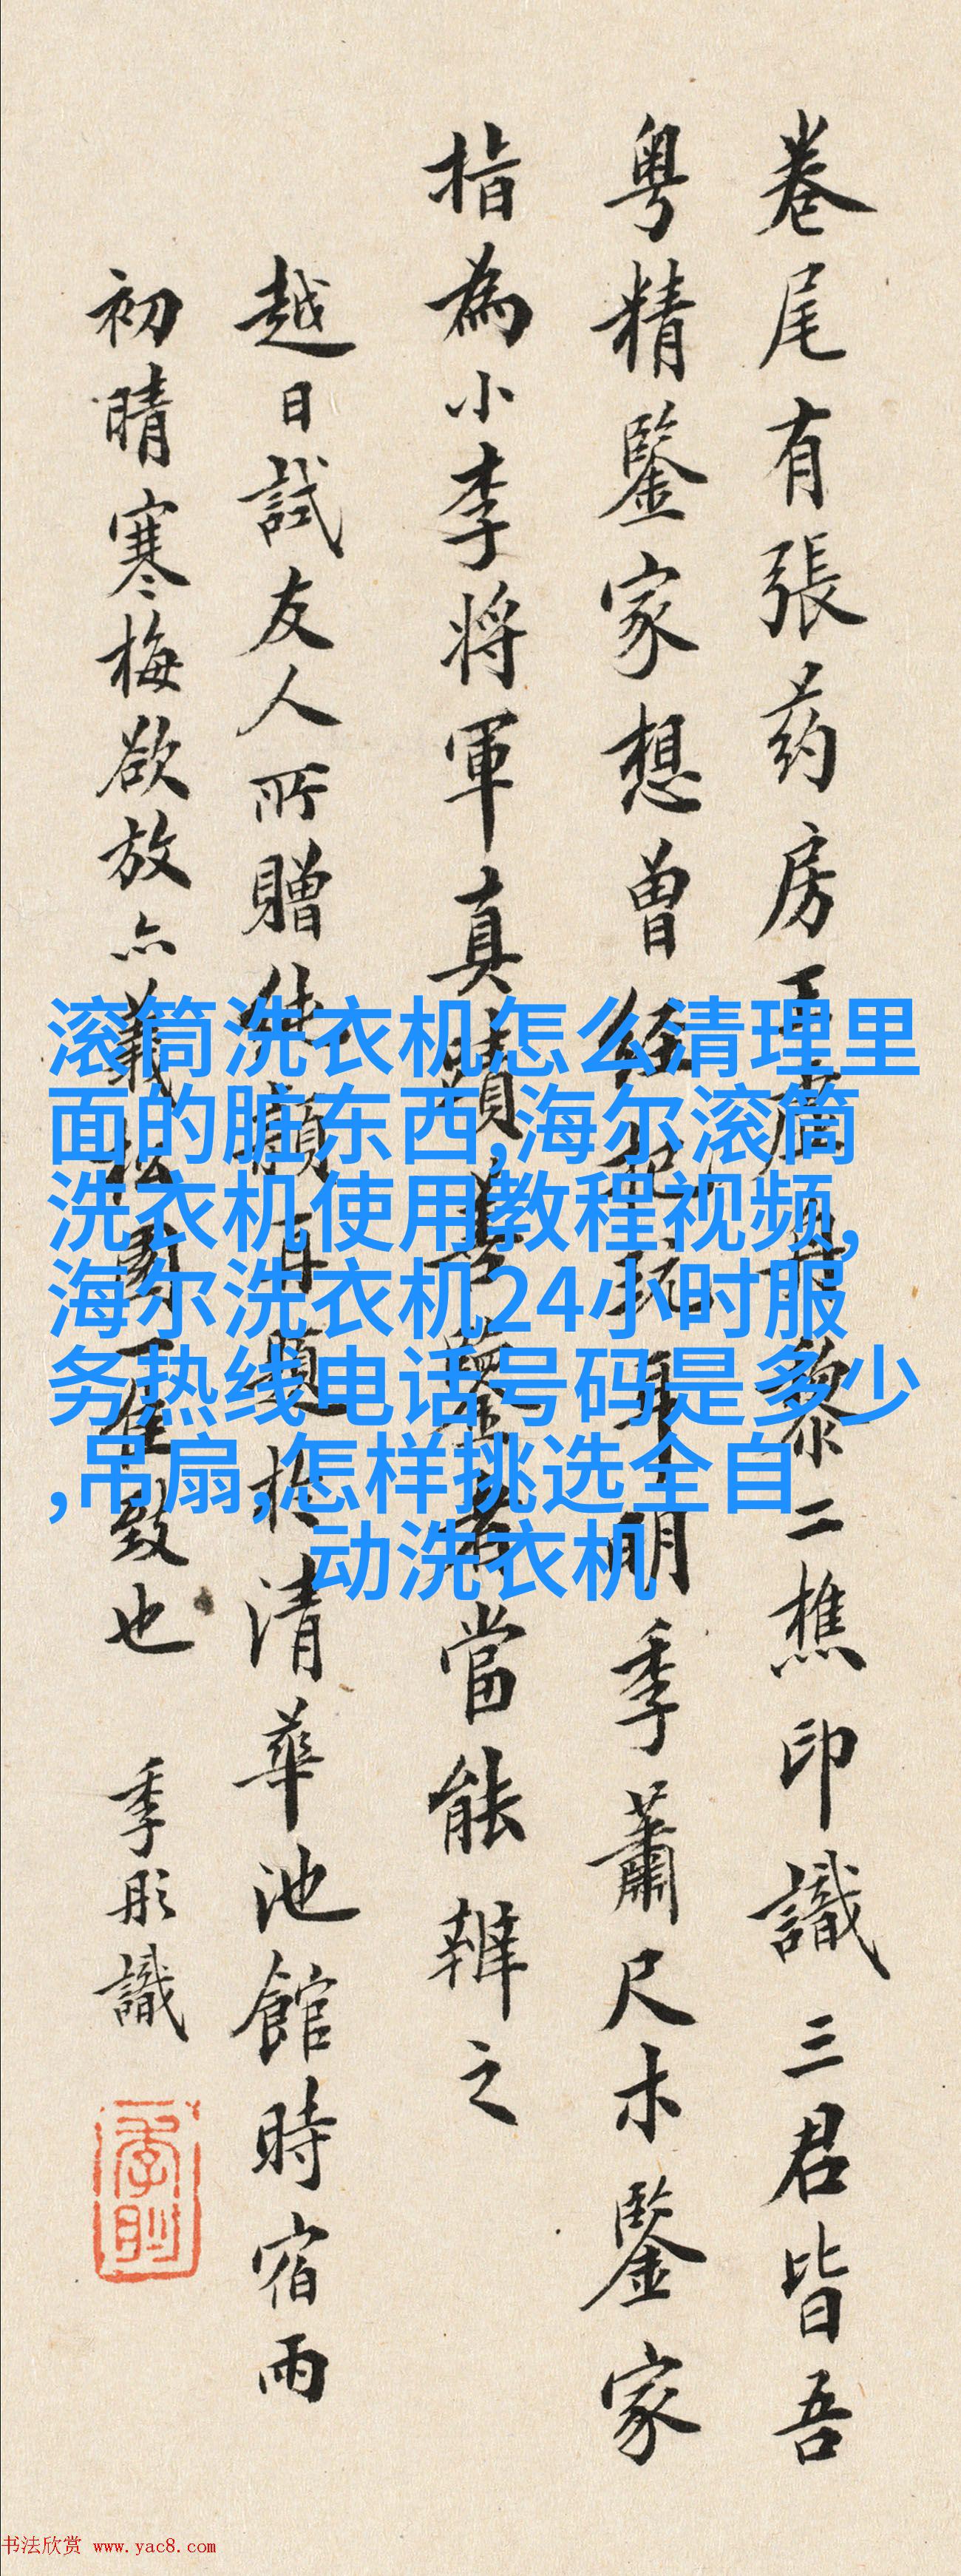 卷尾有張药房
二樵印識三君皆吾
粤精鑒家想曾
明季蕭尺木鑒家
指為小李將軍真蹟
當能辨之
越日試友人所贈
清華池館時宿雨
初晴寒梅欲放亦義
致也 季彤識
滚筒洗衣机怎么清理里
面的脏东西,海尔滚筒
洗衣机使用教程视频,
海尔洗衣机24小时服
务热线电话号码是多少
,吊扇,怎样挑选全自
动洗衣机
书法欣赏 www.yac8.com